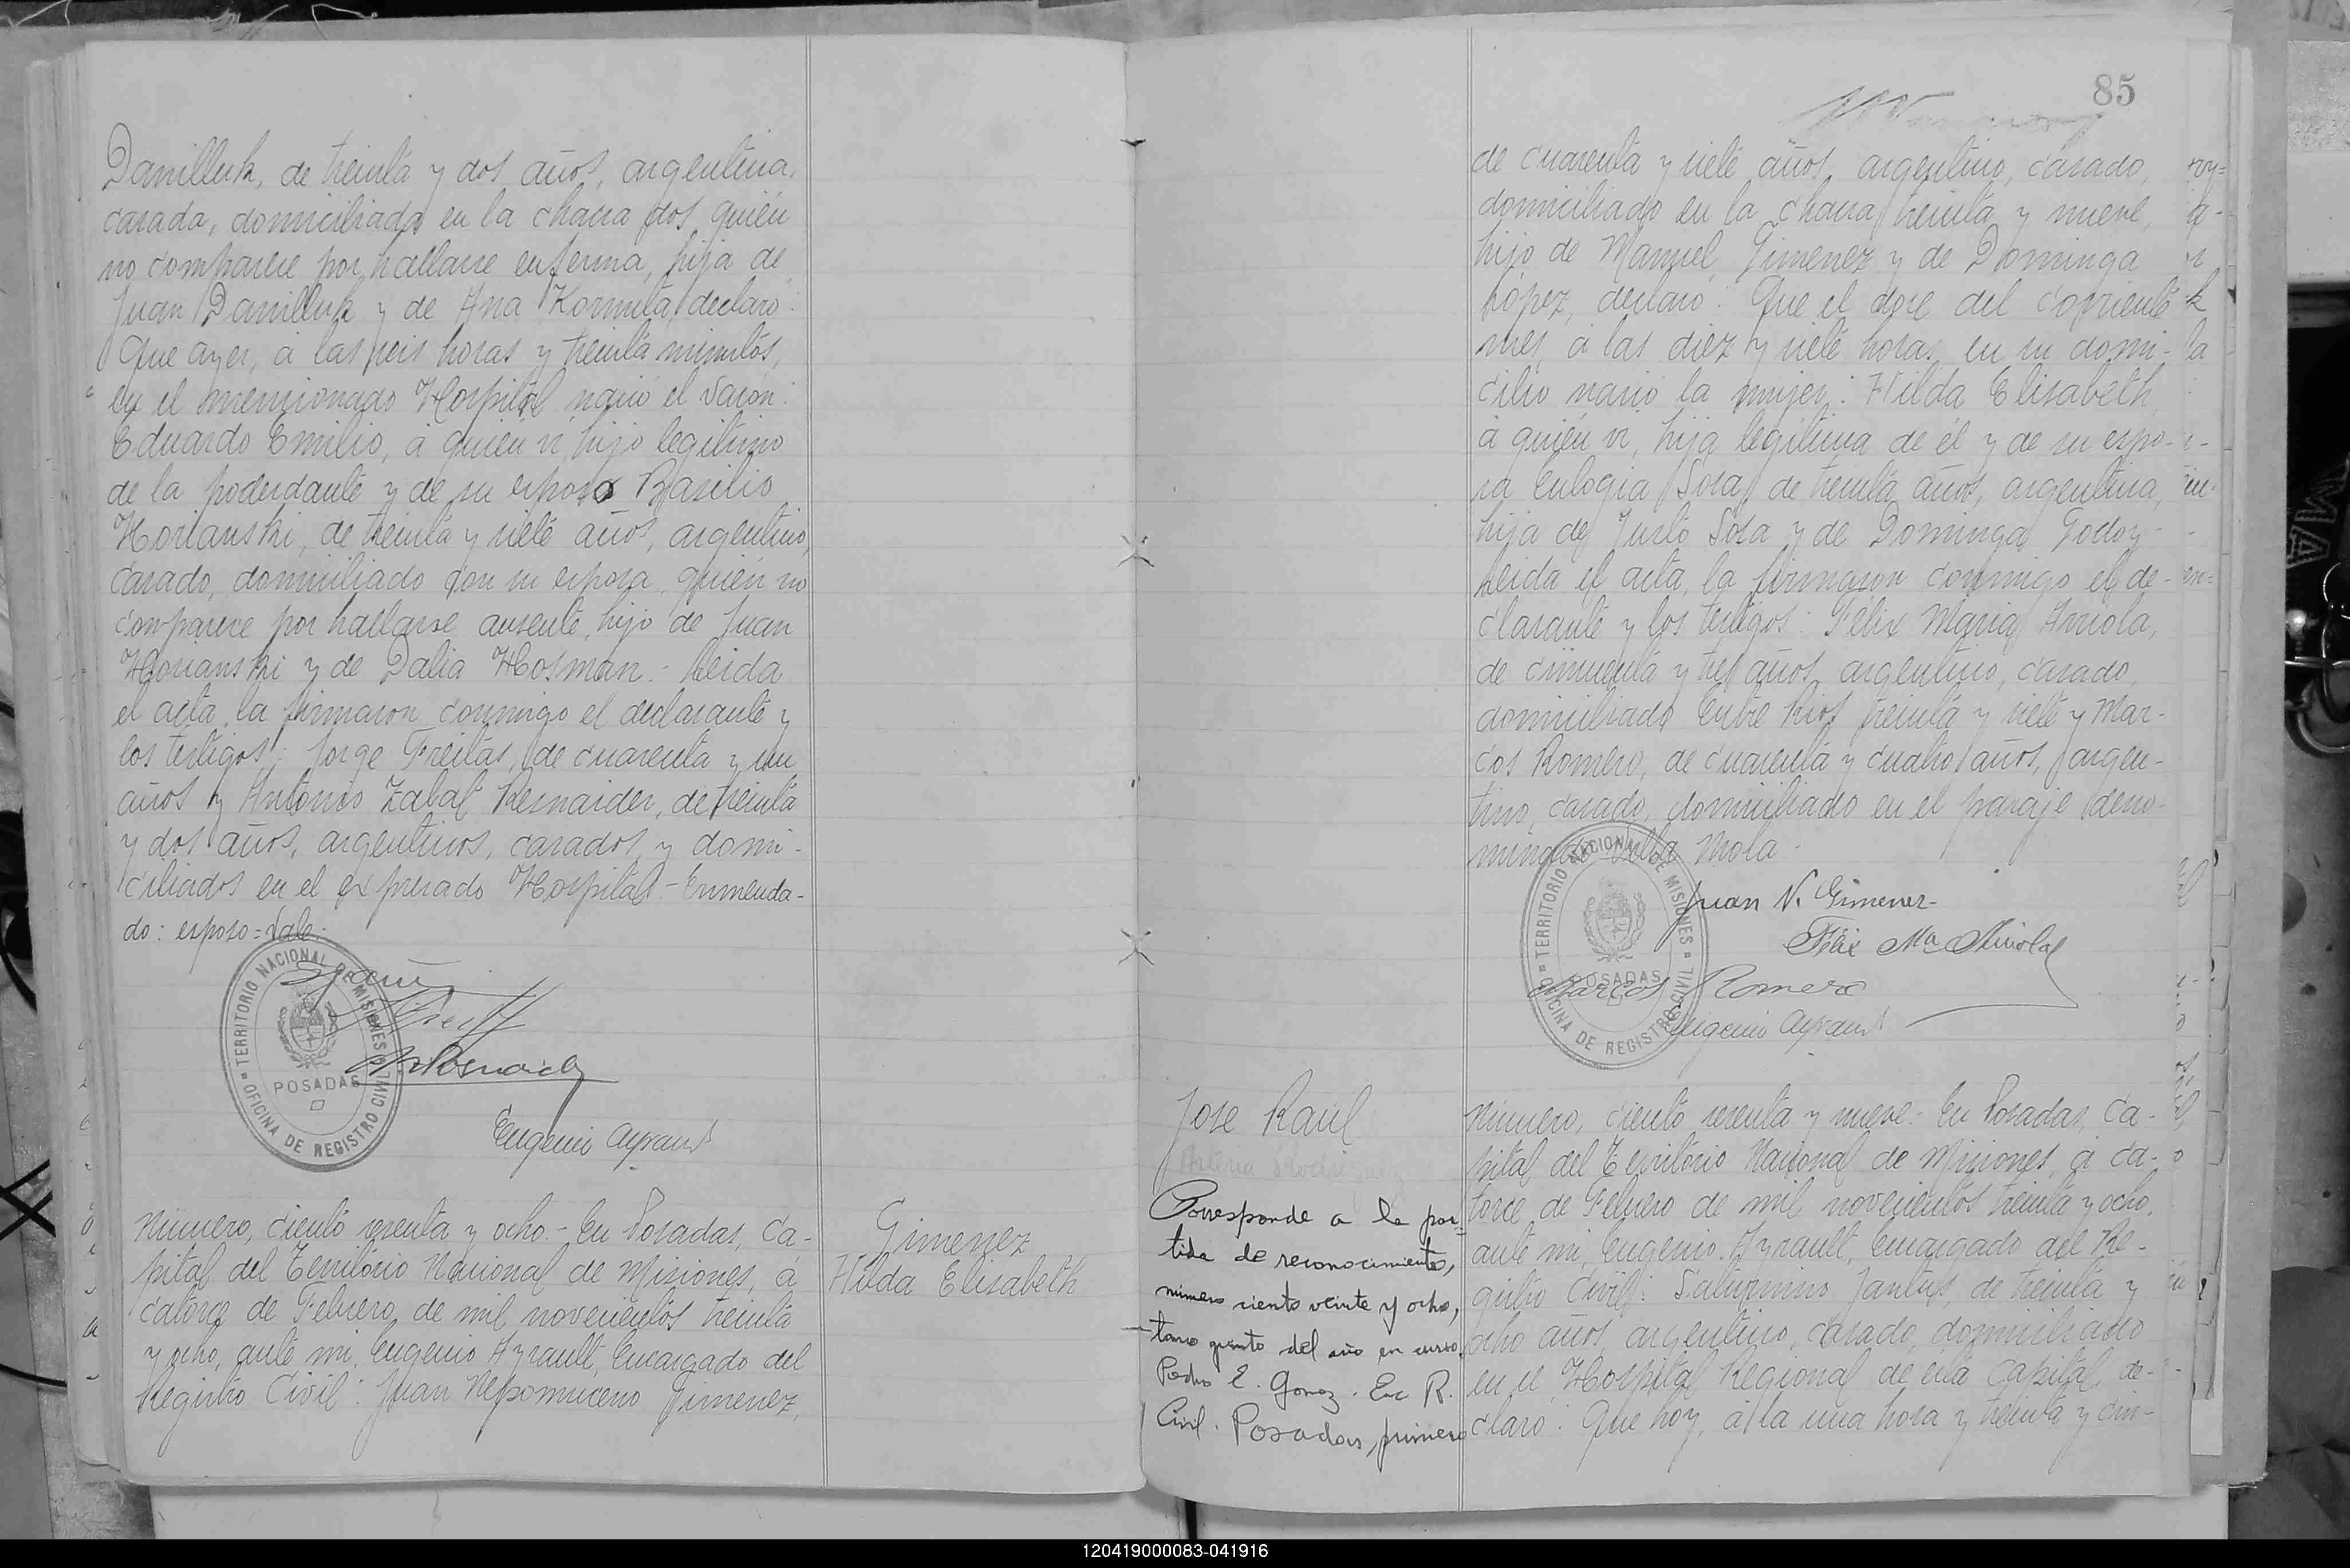 Danilluk, de treinta y dos años, argentina,
casada, domiciliada en la chacra dos, quién
no comparece por hallarse enferma, hija de
Juan Danilluk y de Ana Kornuta, declaró:
Que ayer, á las seis horas y treinta minutos,
en el mencionado Hospital, nació el varón:
Eduardo Emilio, á quién vi, hijo legítimo
de la poderdante y de su esposo Basilio
Horianski, de treinta y siete años, argentino,
casado, domiciliado con su esposa, quién no
comparece por hallarse ausente, hijo de Juan
Horianski y de Dalia Hosman.- Leida
el acta, la firmaron conmigo el declarante y
los testigos: Jorge Freitas, de cuarenta y un
años y Antonio Zalaf Resnaider, de treinta
y dos años, argentinos, casados y domi-
ciliados en el expresado Hospital.- Enmenda-
do: esposo = Vale.-
TERRITORIO NACIONAL DE MISIONES
POSADAS
OFICINA DE REGISTRO CIVIL
Eugenio Ayrault
Número, ciento sesenta y ocho.- En Posadas, Ca-
pital del Territorio Nacional de Misiones, á
catorce de Febrero de mil novecientos treinta
y ocho, ante mi, Eugenio Ayrault, Encargado del
Registro Civil: Juan Nepomuceno Gimenez,
Gimenez
Hilda Elisabeth
85
de cuarenta y siete años, argentino, casado,
domiciliado en la chacra treinta y nueve,
hijo de Manuel Gimenez y de Dominga
López, declaró: Que el doce del corriente
mes, á las diez y siete horas, en su domi-
cilio nació la mujer: Hilda Elisabeth,
á quién vi, hija legítima de él y de su espo-
sa Eulogia Sosa, de treinta años, argentina,
hija de Justo Sosa y de Dominga Godoy.-
Leida el acta, la firmaron conmigo el de-
clarante y los testigos: Félix Maria Arriola,
de cincuenta y tres años, argentino, casado,
domiciliado Entre Rios treinta y siete y Mar-
cos Romero, de cuarenta y cuatro años, argen-
tino, casado, domiciliado en el paraje deno-
minado Villa Mola.-
TERRITORIO NACIONAL DE MISIONES
POSADAS
OFICINA DE REGISTRO CIVIL
Juan N. Gimenez-
Félix Ma Arriola
Marcos Romero
Eugenio Ayrault
José Raúl
Corresponde a la par-
tida de reconocimiento,
número ciento veinte y ocho,
tomo quinto del año en curso.
Pedro E. Gomez. Enc R.
Civil. Posadas, primero
Número, ciento sesenta y nueve.- En Posadas, Ca-
pital del Territorio Nacional de Misiones, á ca-
torce de Febrero de mil novecientos treinta y ocho,
ante mi, Eugenio Ayrault, Encargado del Re-
gistro Civil: Saturnino Jantus, de treinta y
ocho años, argentino, casado, domiciliado
en el Hospital Regional de esta Capital, de-
claró: Que hoy, á la una hora y treinta y cin-
120419000083-041916